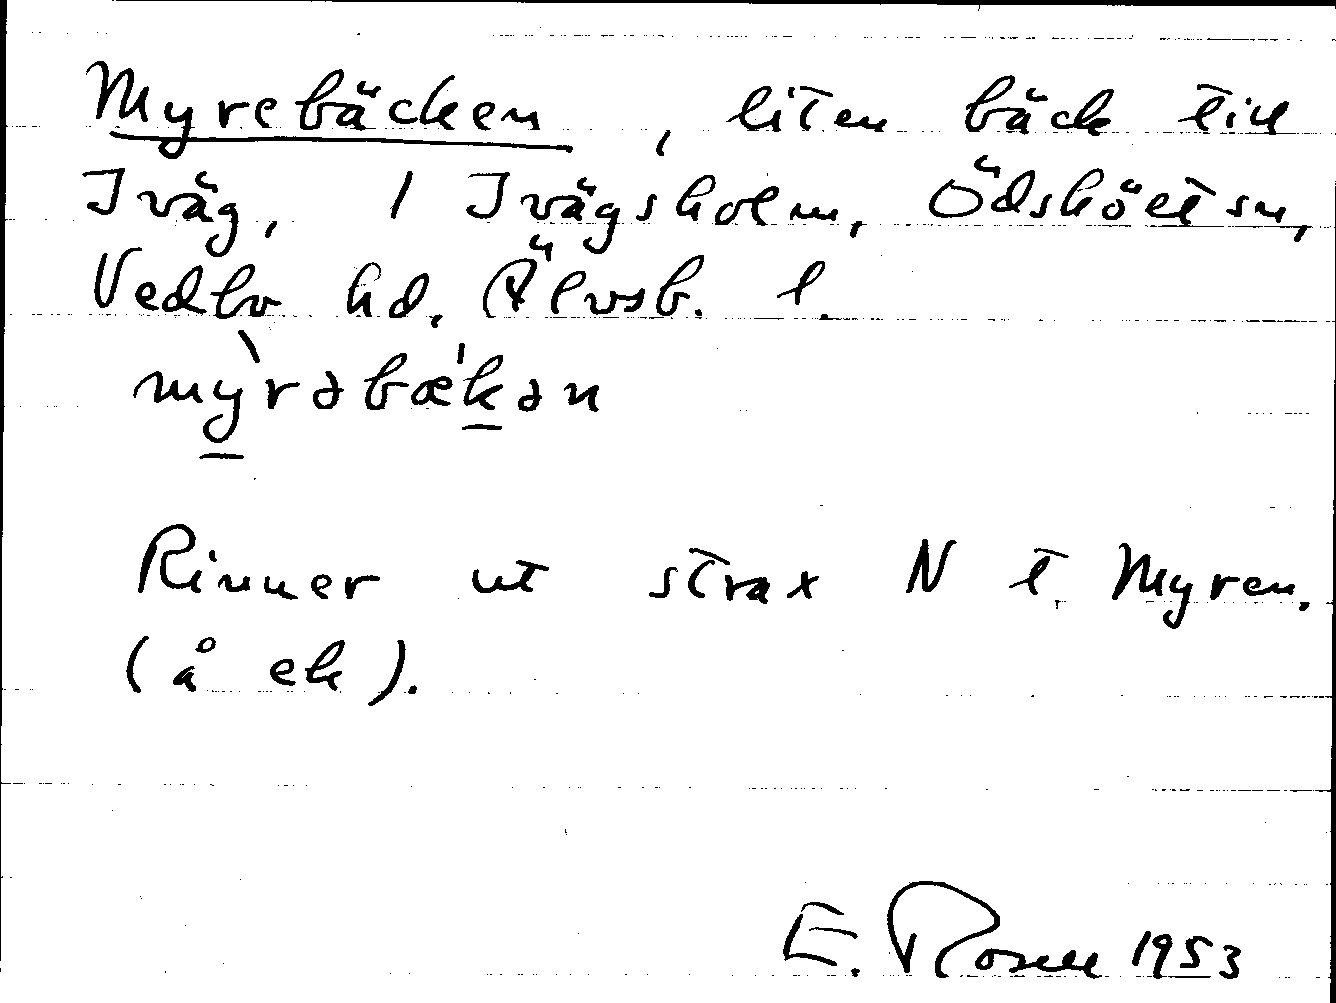 Myrebäcken, liten bäck till
Iväg, 1 Ivägsholm, Ödsköltsn,
Vedbo hd, Älvsb. l.
mỳ̱rəbæ'ḵən
Rinner ut strax N t. Myren.
(å ek).
E. Rosell 1953